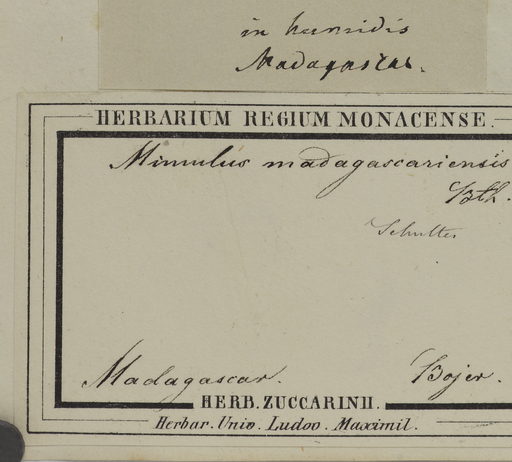 in humidis
Madagascar.
HERBARIUM REGIUM MONACENSE.
Mimulus madagascariensis
Bth.
Schultes
Madagascar.
Bojer.
HERB. ZUCCARINII.
Herbar. Univ. Ludov. Maximil.